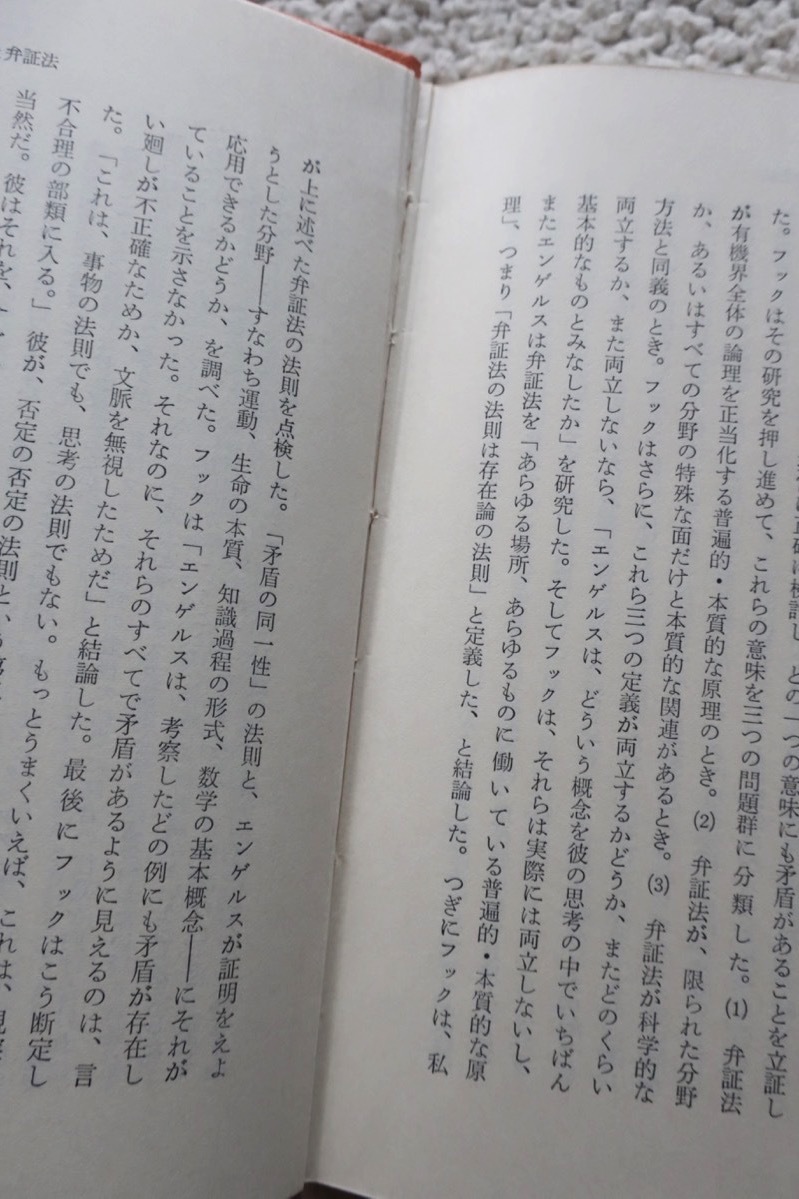 弁証法
の一つの意味にも矛盾があることを立証し
た。フックはその研究を押し進めて、これらの意味を三つの問題群に分類した。(1) 弁証法
が有機界全体の論理を正当化する普遍的・本質的な原理のとき。(2) 弁証法が、限られた分野
か、あるいはすべての分野の特殊な面だけと本質的な関連があるとき。(3) 弁証法が科学的な
方法と同義のとき。フックはさらに、これら三つの定義が両立するかどうか、またどのくらい
両立するか、また両立しないなら、「エンゲルスは、どういう概念を彼の思考の中でいちばん
基本的なものとみなしたか」を研究した。そしてフックは、それらは実際には両立しないし、
またエンゲルスは弁証法を「あらゆる場所、あらゆるものに働いている普遍的・本質的な原
理」、つまり「弁証法の法則は存在論の法則」と定義した、と結論した。つぎにフックは、私
が上に述べた弁証法の法則を点検した。「矛盾の同一性」の法則と、エンゲルスが証明をえよ
うとした分野――すなわち運動、生命の本質、知識過程の形式、数学の基本概念――にそれが
応用できるかどうか、を調べた。フックは「エンゲルスは、考察したどの例にも矛盾が存在し
ていることを示さなかった。それなのに、それらのすべてで矛盾があるように見えるのは、言
い廻しが不正確なためか、文脈を無視したためだ」と結論した。最後にフックはこう断定し
た。「これは、事物の法則でも、思考の法則でもない。もっとうまくいえば、これは、
不合理の部類に入る。」彼が、否定の否定の法則と、
当然だ。彼はそれを、